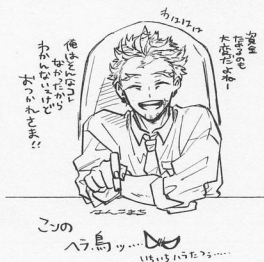 わはははは
資金
ためるのも
大変だよねー
俺はそんなコト
なかったから
わかんないけど
おつかれさま!!
はんこまち
この
ヘラ鳥ッ…
いちいちハラたつぅ……